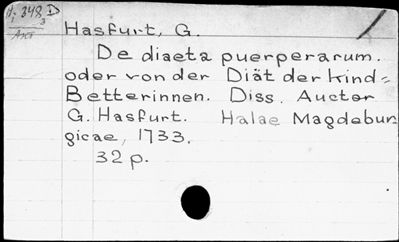 348 D
Hasfurt, G.
De diaeta puerperarum.
oder von der Diät der Kind=
Betterinnen. Diss. Auctor
G. Hasfurt. Halae Magdebur
gicae, 1733.
32 p.